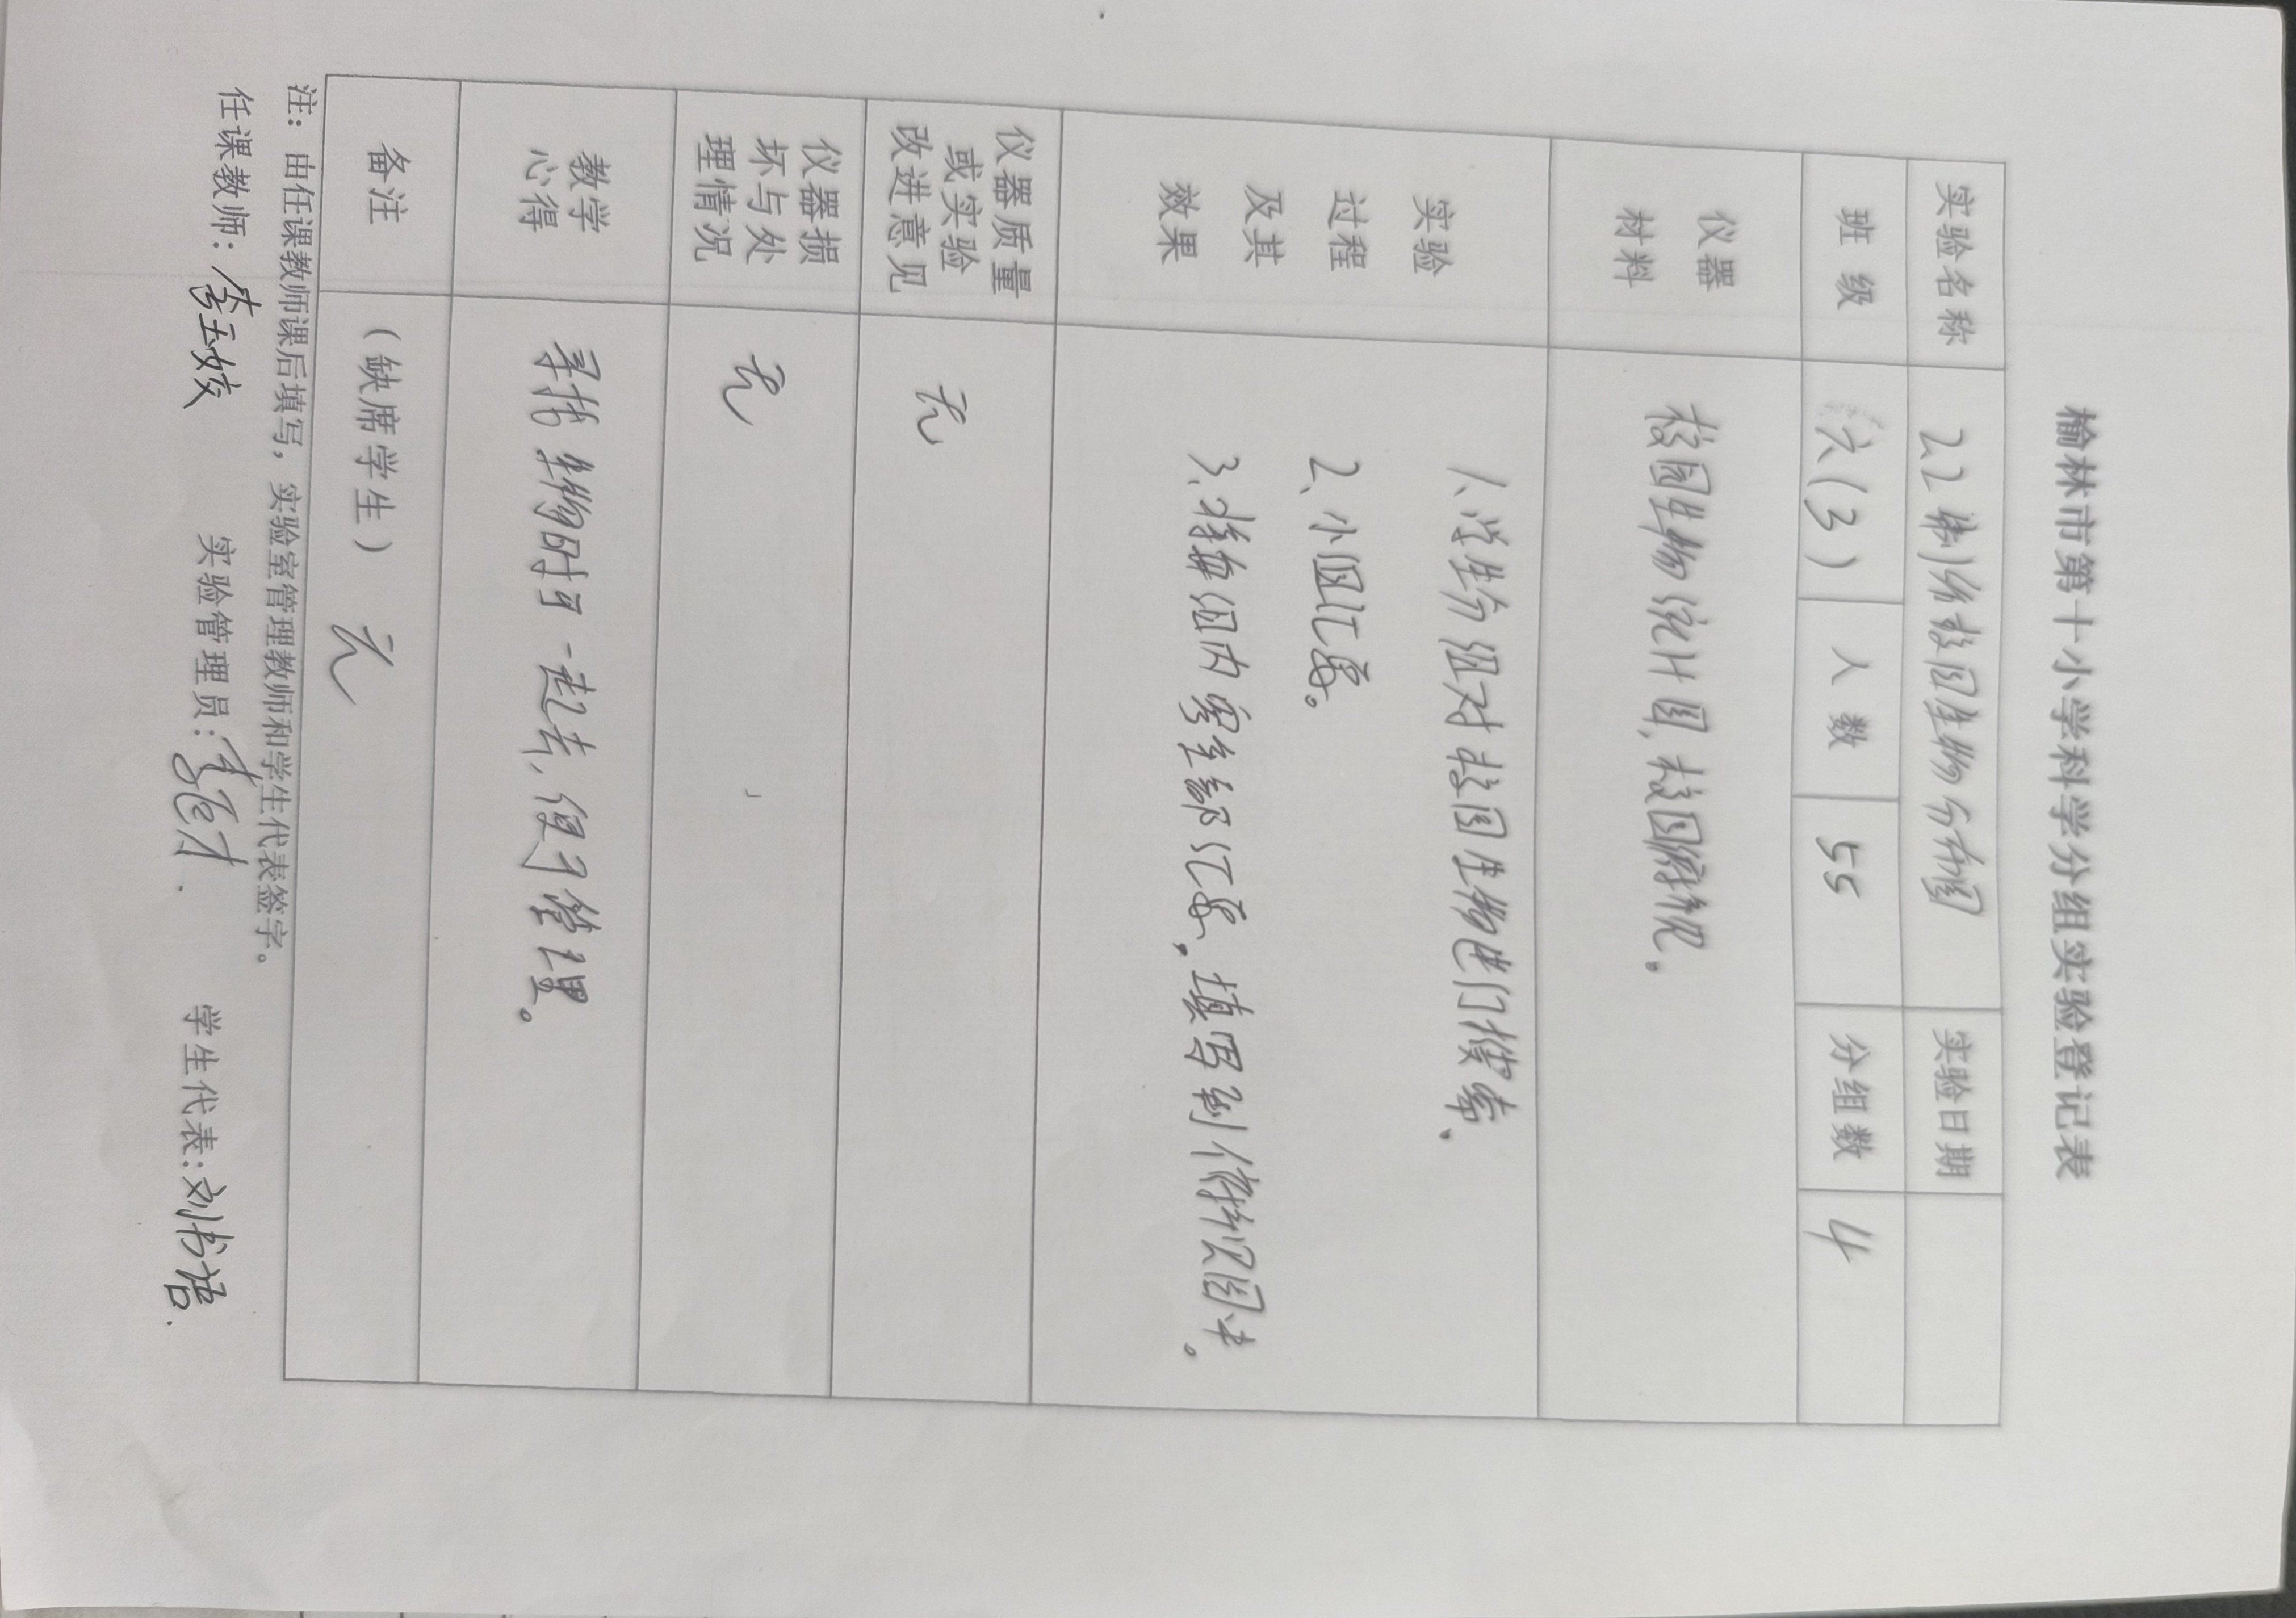 榆林市第十小学科学分组实验登记表
实验名称 22制作校园生物分布图 实验日期
班级 六(3) 人数 55 分组数 4
仪器材料 校园生物统计图,校园俯视。
实验过程及其效果
1、学生分组对校园生物进行搜索、
2、小组汇总。
3、将每组内容全部汇总,填写到俯视图中。
仪器质量或实验改进意见 无
仪器损坏与处理情况 无
教学心得 寻找生物时可一起去,便于管理。
备注 (缺席学生) 无
注:由任课教师课后填写,实验室管理教师和学生代表签字。
任课教师:李玉姣 实验管理员: 学生代表:刘书语.